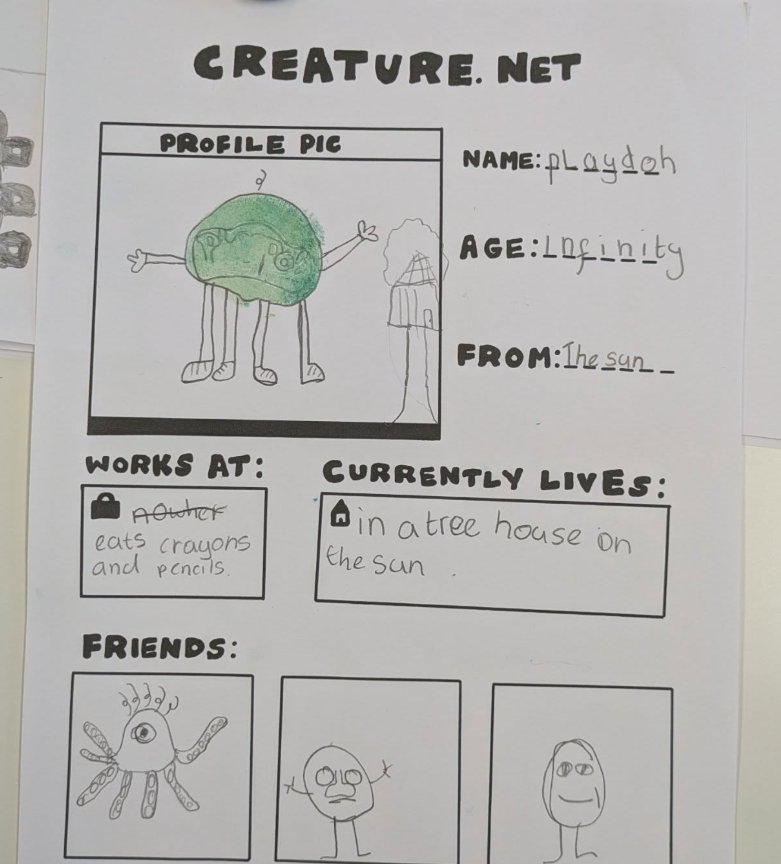 CREATURE.NET
PROFILE PIC
NAME: pLaydoh
AGE: Infinity
FROM: The sun
WORKS AT:
nowher
eats crayons
and pencils.
CURRENTLY LIVES:
in a tree house on
the sun.
FRIENDS: